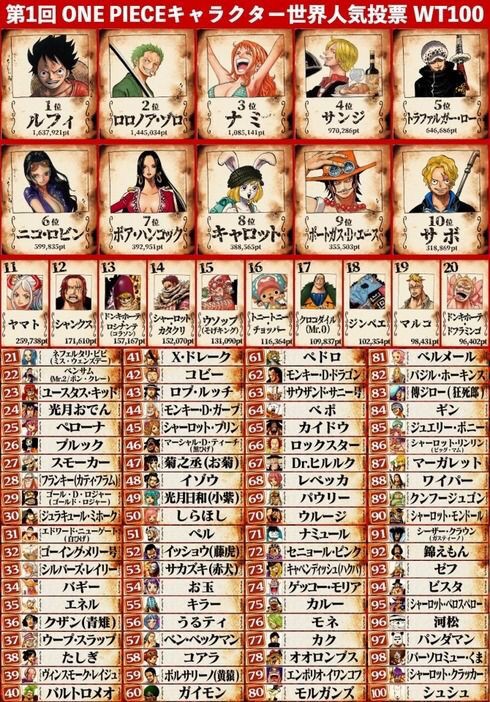 第1回 ONE PIECEキャラクター世界人気投票 WT100
1位
ルフィ
1,637,921pt
2位
ロロノア・ゾロ
1,445,034pt
3位
ナミ
1,085,141pt
4位
サンジ
970,286pt
5位
トラファルガー・ロー
646,686pt
6位
ニコ・ロビン
599,835pt
7位
ボア・ハンコック
392,951pt
8位
キャロット
388,565pt
9位
ポートガス・D・エース
355,503pt
10位
サボ
318,869pt
11
ヤマト
259,738pt
12
シャンクス
171,610pt
13
ドンキホーテ
ロシナンテ
(コラソン)
157,167pt
14
シャーロット
カタクリ
152,070pt
15
ウソップ
(そげキング)
131,090pt
16
トニートニー
チョッパー
116,364pt
17
クロコダイル
(Mr.0)
109,837pt
18
ジンベエ
102,354pt
19
マルコ
98,431pt
20
ドンキホーテ
ドフラミンゴ
96,402pt
21 ネフェルタリ・ビビ
(ミス・ウェンズデー)
22 ベンサム
(Mr.2/ボン・クレー)
23 ユースタス・キッド
24 光月おでん
25 ペローナ
26 ブルック
27 スモーカー
28 フランキー(カティ・フラム)
29 ゴール・D・ロジャー
(ゴールド・ロジャー)
30 ジュラキュール・ミホーク
31 エドワード・ニューゲート
(白ひげ)
32 ゴーイング・メリー号
33 シルバーズ・レイリー
34 バギー
35 エネル
36 クザン(青雉)
37 ウープ・スラップ
38 たしぎ
39 ヴィンスモーク・レイジュ
40 バルトロメオ
41 X・ドレーク
42 コビー
43 ロブ・ルッチ
44 モンキー・D・ガープ
45 シャーロット・プリン
46 マーシャル・D・ティーチ
(黒ひげ)
47 菊之丞(お菊)
48 イゾウ
49 光月日和(小紫)
50 しらほし
51 ペル
52 イッショウ(藤虎)
53 サカズキ(赤犬)
54 お玉
55 キラー
56 うるティ
57 ベン・ベックマン
58 コアラ
59 ボルサリーノ(黄猿)
60 ガイモン
61 ペドロ
62 モンキー・D・ドラゴン
63 サウザンド・サニー号
64 ベポ
65 カイドウ
66 ロックスター
67 Dr.ヒルルク
68 レベッカ
69 パウリー
70 ウルージ
71 ナミュール
72 セニョール・ピンク
73 キャベンディッシュ(ハクバ)
74 ゲッコー・モリア
75 カルー
76 モネ
77 カク
78 オオロンブス
79 エンポリオ・イワンコフ
80 モルガンズ
81 ベルメール
82 バジル・ホーキンス
83 傳ジロー(狂死郎)
84 ギン
85 ジュエリー・ボニー
86 シャーロット・リンリン
(ビッグ・マム)
87 マーガレット
88 ワイパー
89 クンフージュゴン
90 シャーロット・モンドール
91 シーザー・クラウン
(ガスティーノ)
92 錦えもん
93 ゼフ
94 ビスタ
95 シャーロット・ペロスペロー
96 河松
97 パンダマン
98 バーソロミュー・くま
99 シャーロット・クラッカー
100 シュシュ